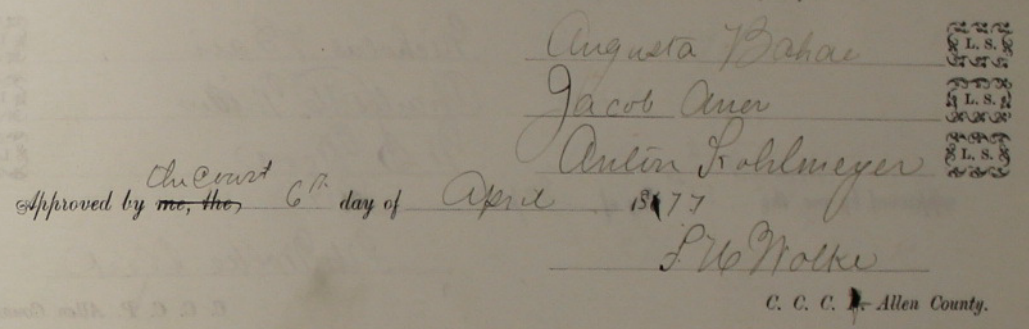 Augusta Bahde L. S.
Jacob Auer L. S.
Anton Kohlmeyer L. S.
the Court
Approved by me, the, 6th day of April 1877
F H Wolke
C. C. C. Allen County.